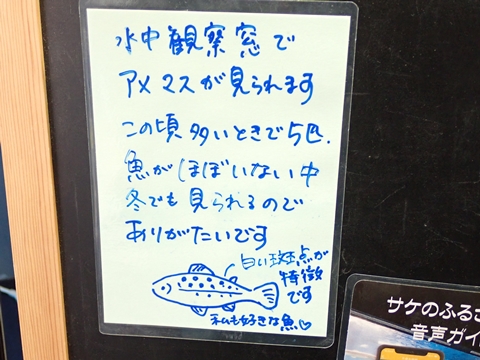 水中観察窓で
アメマスが見られます
この頃多いときで5匹.
魚がほぼいない中
冬でも見られるので
ありがたいです
白い斑点が
特徴
です
私も好きな魚♡
サケのふるさ
音声ガイ